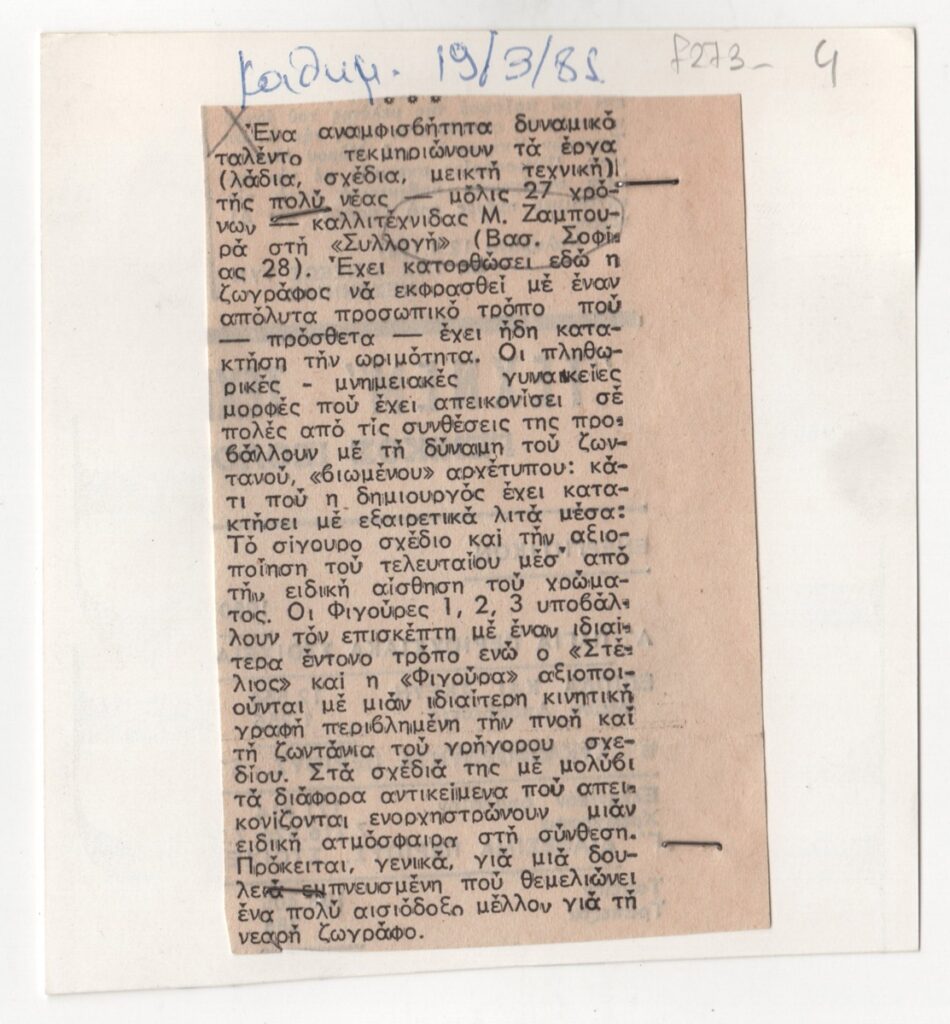 Καθημ. 19/3/81 f273- 4
Ἕνα αναμφισβήτητα δυναμικό
ταλέντο τεκμηριώνουν τά έργα
(λάδια, σχέδια, μεικτή τεχνική)
τής πολύ νέας — μόλις 27 χρό-
νων — καλλιτέχνιδας Μ. Ζαμπου-
ρά στή «Συλλογή» (Βασ. Σοφί-
ας 28). Έχει κατορθώσει εδώ η
ζωγράφος νά εκφρασθεί μέ έναν
απόλυτα προσωπικό τρόπο πού
— πρόσθετα — έχει ήδη κατα-
κτήση τήν ωριμότητα. Οι πληθω-
ρικές - μνημειακές γυναικείες
μορφές πού έχει απεικονίσει σέ
πολές από τίς συνθέσεις της προ-
βάλλουν μέ τή δύναμη τού ζων-
τανού, «βιωμένου» αρχέτυπου: κά-
τι πού η δημιουργός έχει κατα-
κτήσει μέ εξαιρετικά λιτά μέσα:
Τό σίγουρο σχέδιο καί τήν αξιο-
ποίηση τού τελευταίου μέσ' από
τήν ειδική αίσθηση τού χρώμα-
τος. Οι Φιγούρες 1, 2, 3 υποβάλ-
λουν τόν επισκέπτη μέ έναν ιδιαί-
τερα έντονο τρόπο ενώ ο «Στέ-
λιος» καί η «Φιγούρα» αξιοποι-
ούνται μέ μιάν ιδιαίτερη κινητική
γραφή περιβλημένη τήν πνοή καί
τή ζωντάνια τού γρήγορου σχε-
δίου. Στά σχέδιά της μέ μολύβι
τά διάφορα αντικείμενα πού απει-
κονίζονται ενορχηστρώνουν μιάν
ειδική ατμόσφαιρα στή σύνθεση.
Πρόκειται, γενικά, γιά μιά δου-
λειά εμπνευσμένη πού θεμελιώνει
ένα πολύ αισιόδοξο μέλλον γιά τή
νεαρή ζωγράφο.